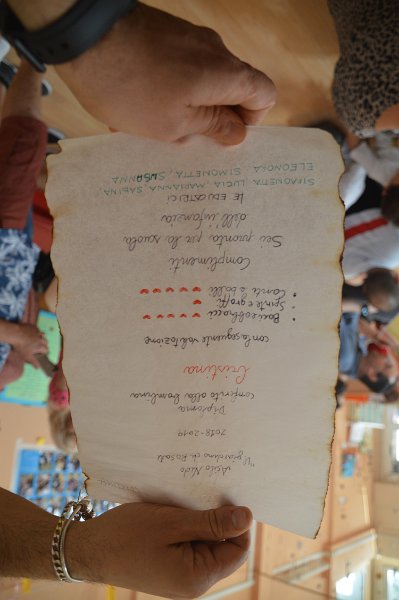 Asilo Nido
"Il giardino di Rosati
2018-2019
Diploma
conferito alla bambina
Cristina
con la seguente valutazione
• Baci e abbracci ♥♥♥♥♥
• Spinte e graffi ♥
• Canti e balli ♥♥♥♥♥
Complimenti
Sei pronta per la scuola
dell'infanzia
LE EDUCATRICI
SIMONETTA, LUCIA, MARIANNA, SABINA,
ELEONORA, SIMONETTA, SUSANNA